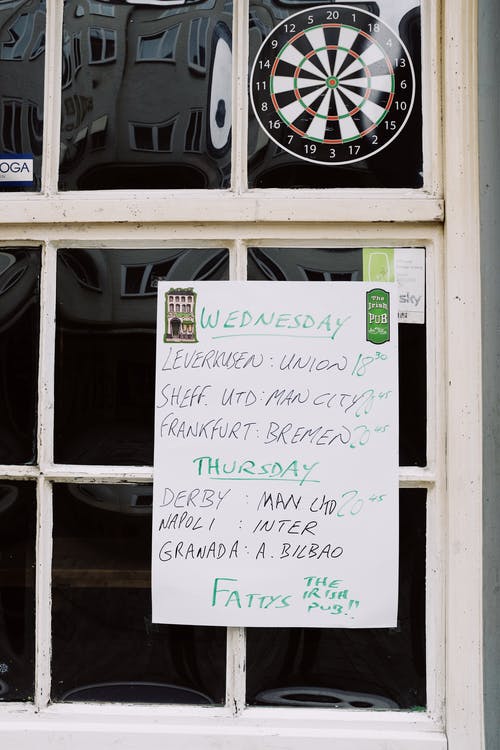 20
12 5 18
9 1
14 4
11 13
8 6
16 10
7 15
19 3 17 2
OGA
sky
The
Irish
PUB
WEDNESDAY
LEVERKUSEN : UNION 18 30
SHEFF. UTD : MAN CITY 20 45
FRANKFURT : BREMEN 20 45
THURSDAY
DERBY : MAN UTD 20 45
NAPOLI : INTER
GRANADA : A. BILBAO
FATTYS THE IRISH PUB!!